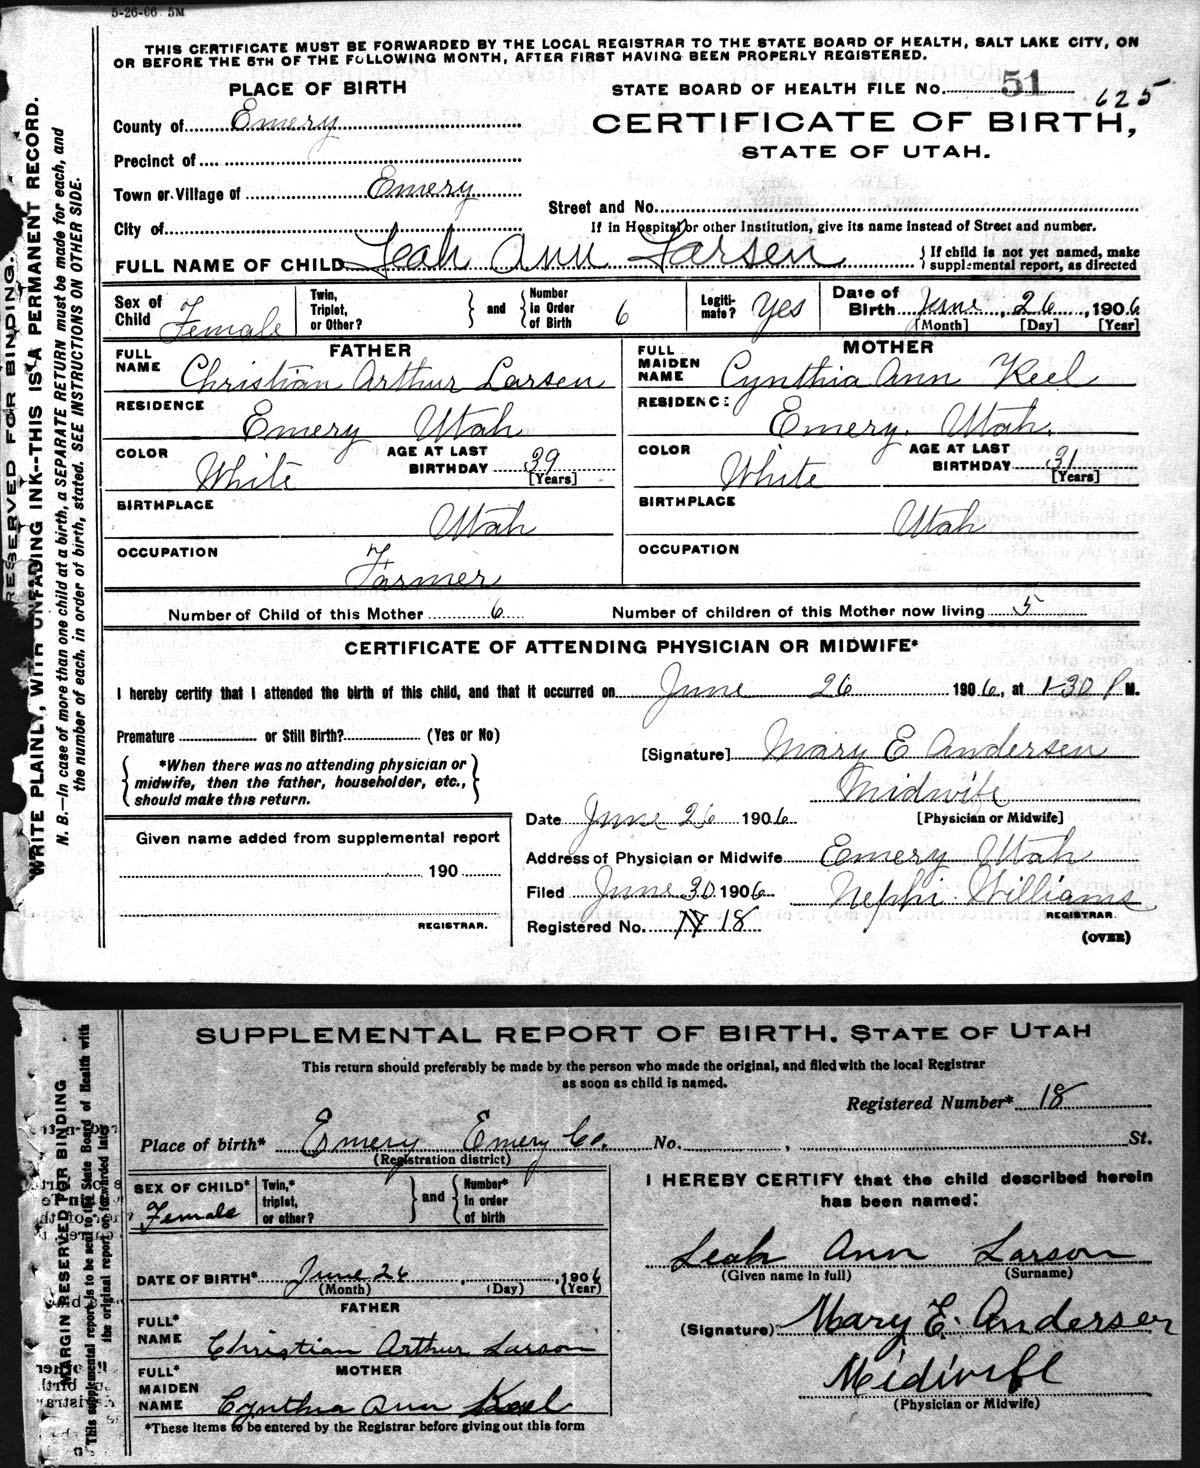 5-26-06 5M
THIS CERTIFICATE MUST BE FORWARDED BY THE LOCAL REGISTRAR TO THE STATE BOARD OF HEALTH, SALT LAKE CITY, ON
OR BEFORE THE 5TH OF THE FOLLOWING MONTH, AFTER FIRST HAVING BEEN PROPERLY REGISTERED.
PLACE OF BIRTH
STATE BOARD OF HEALTH FILE No. 51 625
County of Emery
CERTIFICATE OF BIRTH,
STATE OF UTAH.
Precinct of
Town or Village of Emery
Street and No.
City of
If in Hospital or other Institution, give its name instead of Street and number.
FULL NAME OF CHILD Leah Ann Larsen { If child is not yet named, make supplemental report, as directed
Sex of Child Female
Twin, Triplet, or Other? } and { Number in Order of Birth 6
Legiti-mate? Yes
Date of Birth June, 26, 1906
[Month] [Day] [Year]
FATHER
FULL NAME Christian Arthur Larsen
RESIDENCE Emery Utah
COLOR White AGE AT LAST BIRTHDAY 39 [Years]
BIRTHPLACE Utah
OCCUPATION Farmer
MOTHER
FULL MAIDEN NAME Cynthia Ann Keel
RESIDENCE Emery. Utah.
COLOR White AGE AT LAST BIRTHDAY 31 [Years]
BIRTHPLACE Utah
OCCUPATION
Number of Child of this Mother 6 Number of children of this Mother now living 5
CERTIFICATE OF ATTENDING PHYSICIAN OR MIDWIFE*
I hereby certify that I attended the birth of this child, and that it occurred on June 26 1906, at 1-30 P M.
Premature or Still Birth? (Yes or No)
[Signature] Mary E Andersen
*When there was no attending physician or
midwife, then the father, householder, etc.,
should make this return.
Midwife
[Physician or Midwife]
Date June 26 1906
Given name added from supplemental report
190
REGISTRAR.
Address of Physician or Midwife Emery Utah
Filed June 30 1906 Nephi Williams
REGISTRAR.
Registered No. 18
(OVER)
RESERVED FOR BINDING.
WRITE PLAINLY, WITH UNFADING INK--THIS IS A PERMANENT RECORD.
N. B.—In case of more than one child at a birth, a SEPARATE RETURN must be made for each, and
the number of each, in order of birth, stated. SEE INSTRUCTIONS ON OTHER SIDE.
SUPPLEMENTAL REPORT OF BIRTH. STATE OF UTAH
This return should preferably be made by the person who made the original, and filed with the local Registrar
as soon as child is named.
Registered Number* 18
Place of birth* Emery Emery Co. No. , St.
(Registration district)
SEX OF CHILD* Female
Twin,* triplet, or other? } and { Number* in order of birth
DATE OF BIRTH* June 26, , 1906
(Month) (Day) (Year)
FATHER
FULL* NAME Christian Arthur Larson
MOTHER
FULL* MAIDEN NAME Cynthia Ann Keel
*These items to be entered by the Registrar before giving out this form
I HEREBY CERTIFY that the child described herein
has been named:
Leah Ann Larson
(Given name in full) (Surname)
(Signature) Mary E. Andersen
Midwife
(Physician or Midwife)
MARGIN RESERVED FOR BINDING
This supplemental report is to be sent to the State Board of Health with
the original report or forwarded later